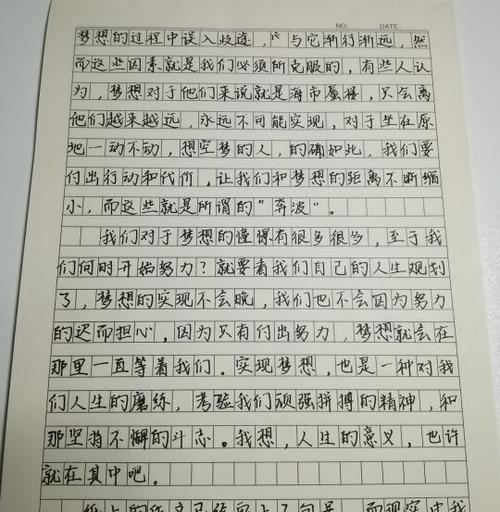 NO.        DATE.
梦想的过程中误入歧途，与它渐行渐远，然
而这些因素就是我们必须所克服的，有些人认
为，梦想对于他们来说就是海市蜃楼，只会离
他们越来越远，永远不可能实现，对于坐在原
地一动不动，想空梦的人，的确如此，我们要
付出行动和代价，让我们和梦想的距离不断缩
小，而这些就是所谓的“奔波”。
我们对于梦想的憧憬有很多很多，至于我
们何时开始努力？就要看我们自己的人生规划
了，梦想的实现不会晚，我们也不会因为努力
的迟而担心，因为只有付出努力，梦想就会在
那里一直等着我们。实现梦想，也是一种对我
们人生的磨练，考验我们顽强拼搏的精神，和
那坚持不懈的斗志。我想，人生的意义，也许
就在其中吧。